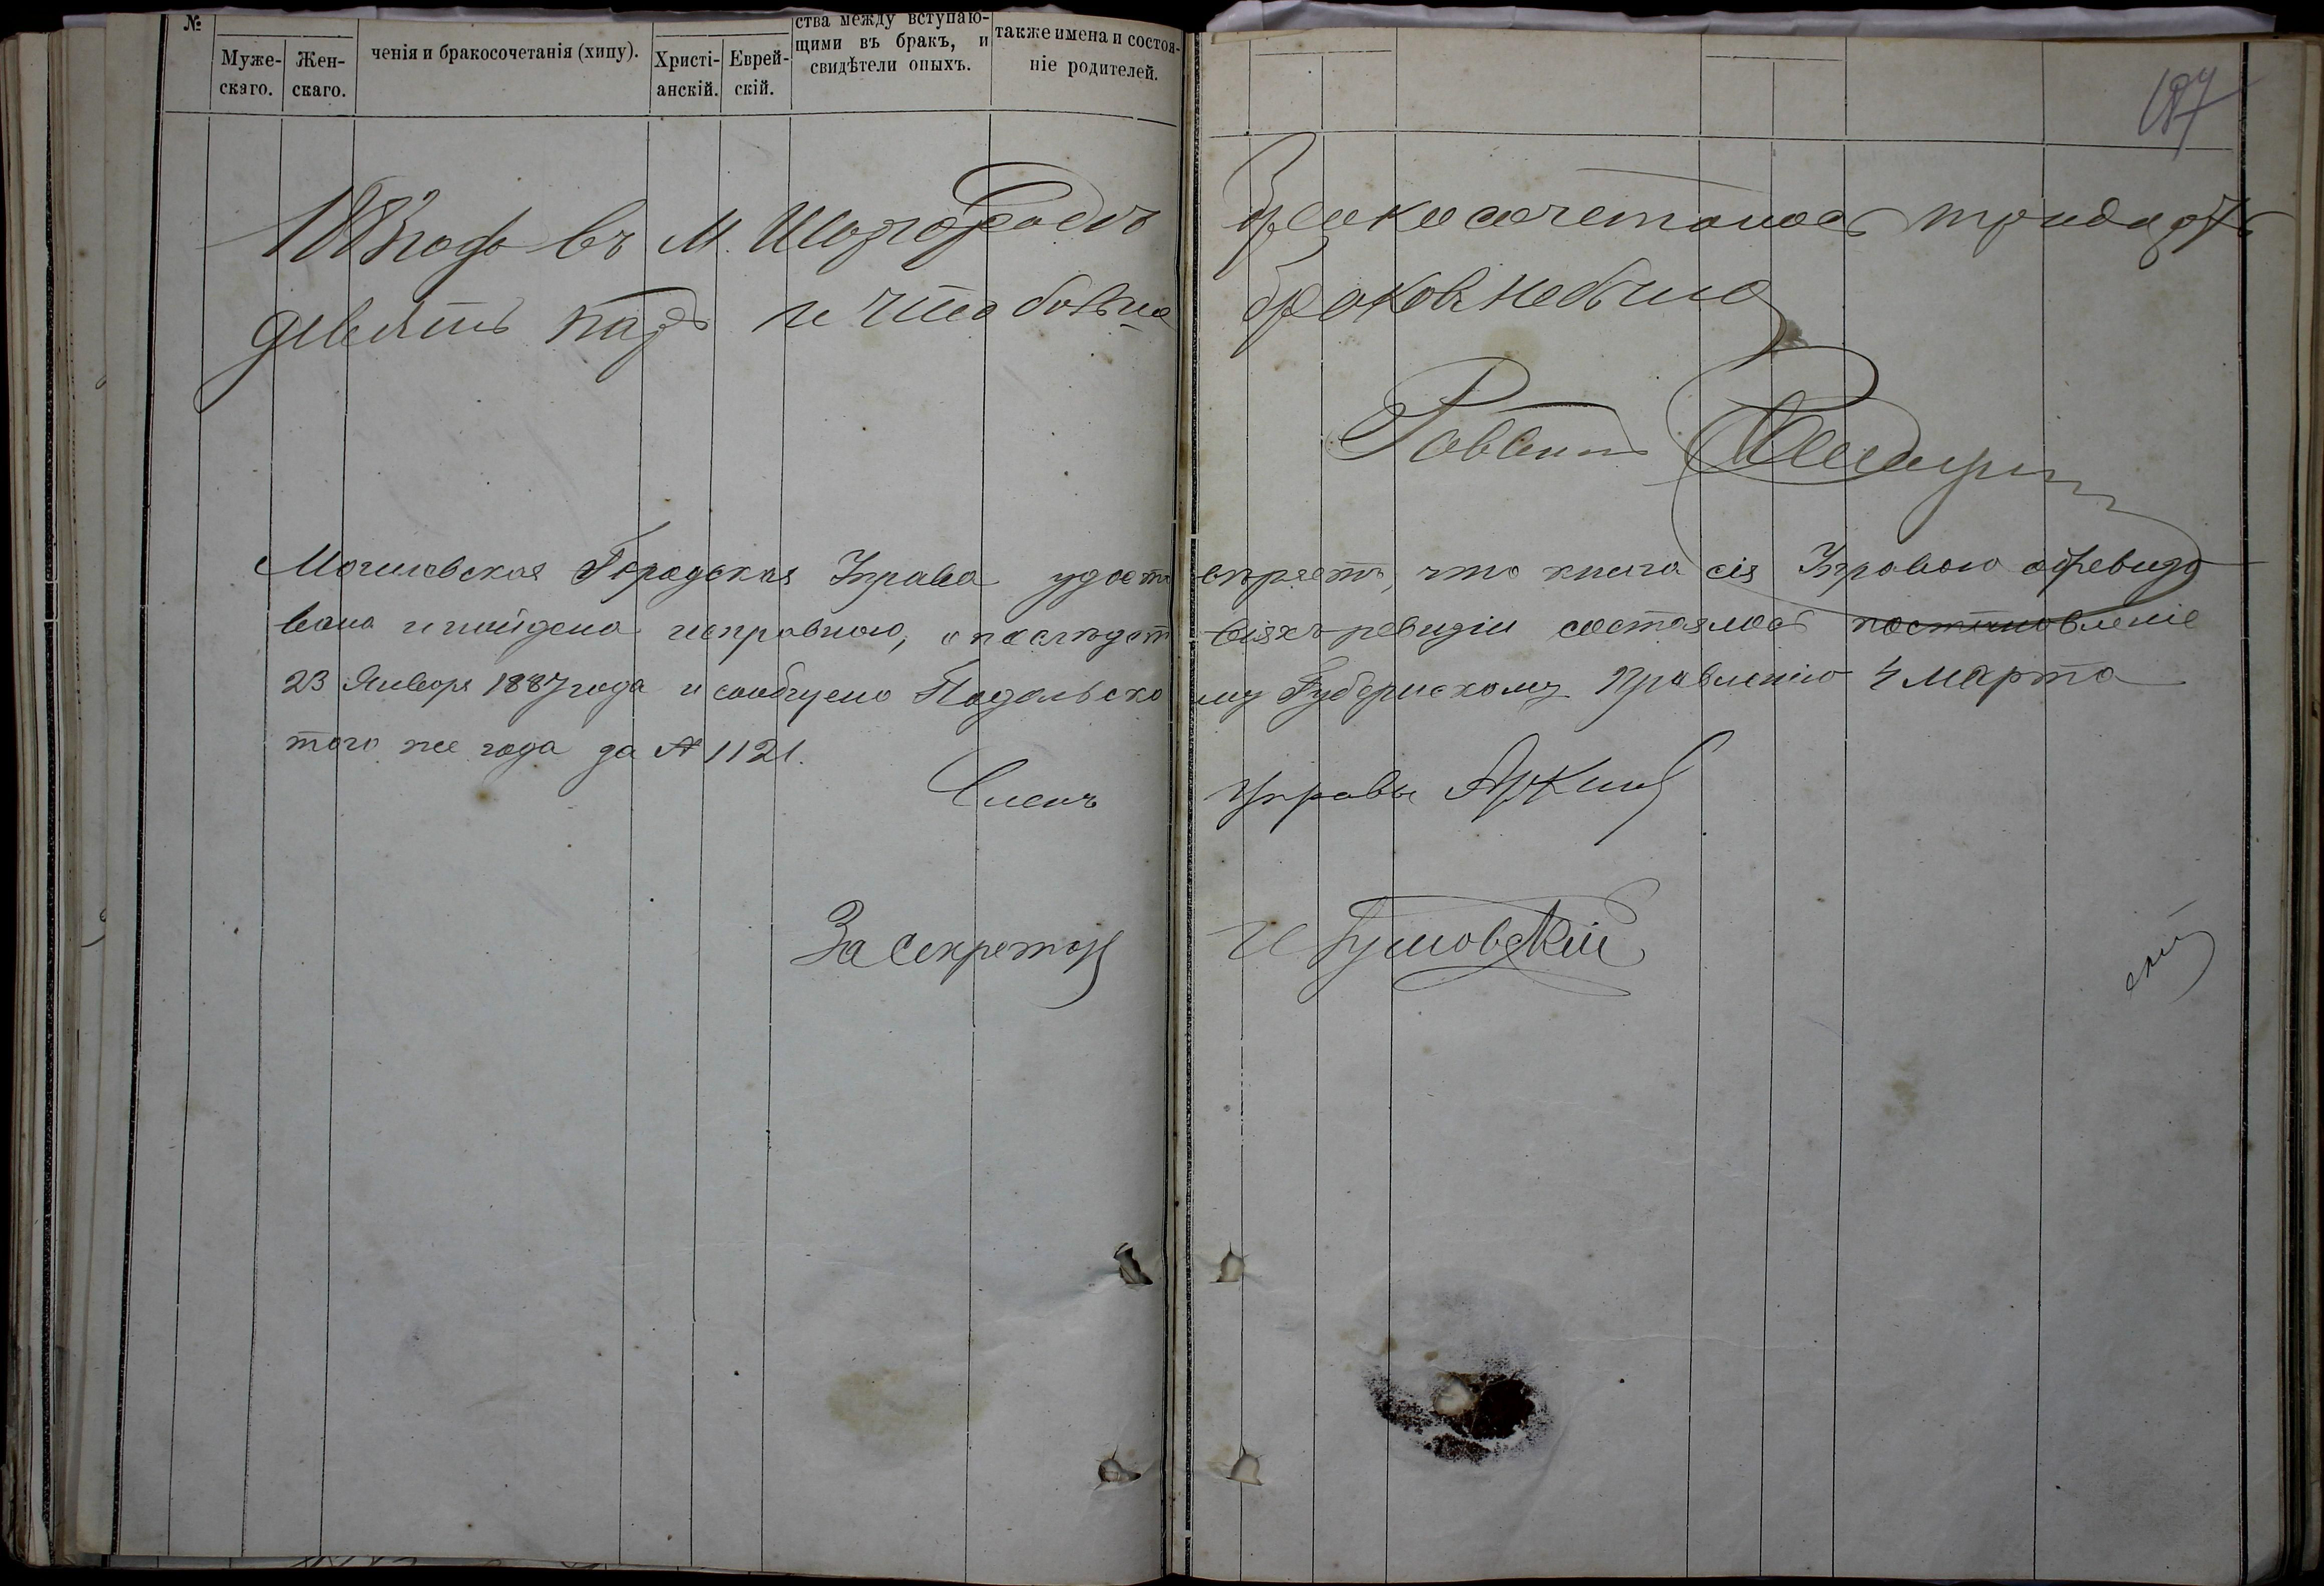 №
Муже-
скаго.
Жен-
скаго.
ченія и бракосочетанія (хипу).
Христі-
анскій.
Еврей-
скій.
ства между вступаю-
щими въ бракъ, и
свидѣтели оныхъ.
также имена и состоя-
ніе родителей.
197
года въ м. Шаргородѣ бракосочеталось тридцать
девять паръ и что больше браковъ не было
Раввинъ
Могилевская Городская Управа удосто вѣряетъ, что книга сія Управою обревизо
вана и найдена исправною, о послѣдст віяхъ ревизіи состоялось постановленіе
23 Января 1887 года и сообщено Подольско му Губернскому Правленію 4 Марта
того же года за № 1121.
Членъ Управы
За Секретаря
скій